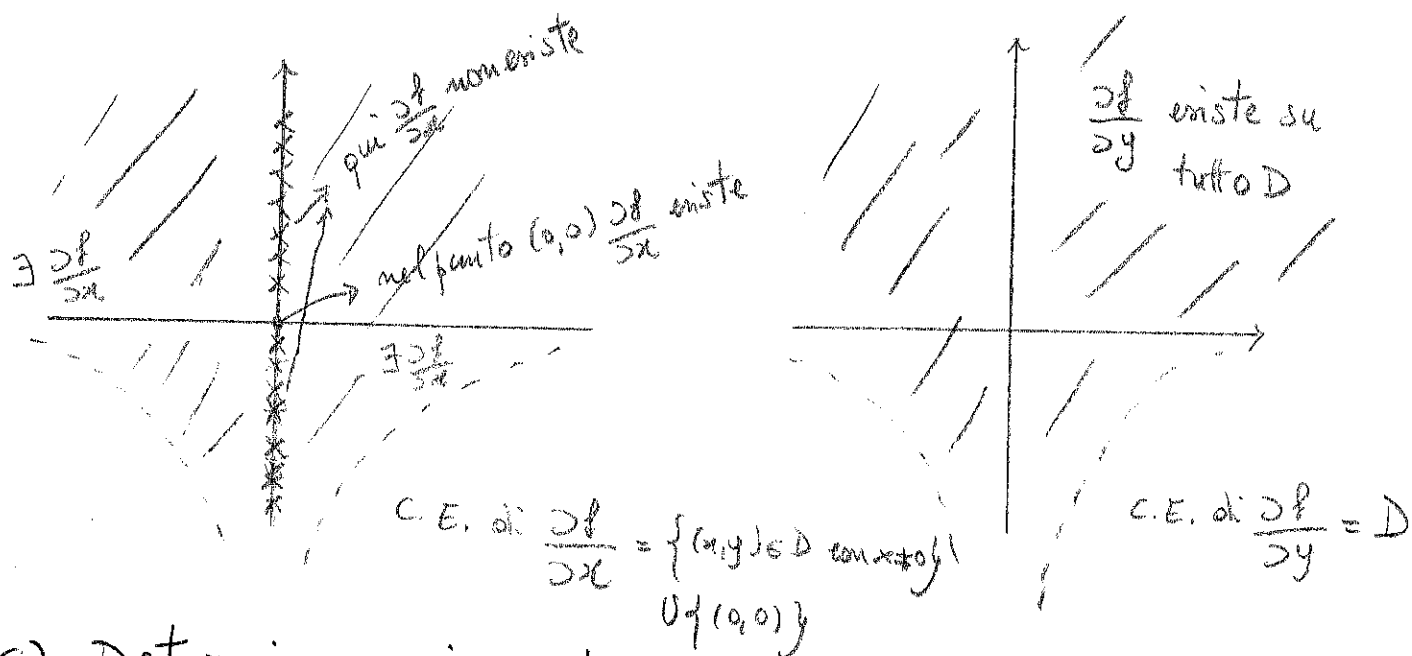 qui ∂f/∂x non esiste
nel punto (0,0) ∂f/∂x esiste
∃ ∂f/∂x
∃ ∂f/∂x
C.E. di ∂f/∂x = {(x,y)∈D con x≠0}
∪{(0,0)}
∂f/∂y esiste su
tutto D
C.E. di ∂f/∂y = D